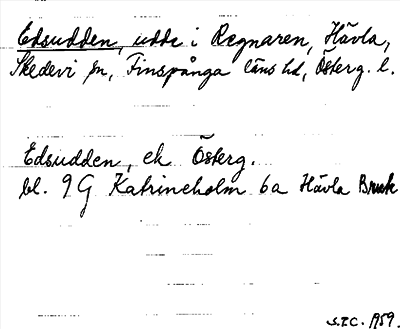 Edsudden, udde i Regnaren, Hävla,
Skedevi sn, Finspånga läns hd, Österg. l.
Edsudden, ek Österg.
bl. 9 G Katrineholm 6a Hävla Bruk
S.T.C. 1959.